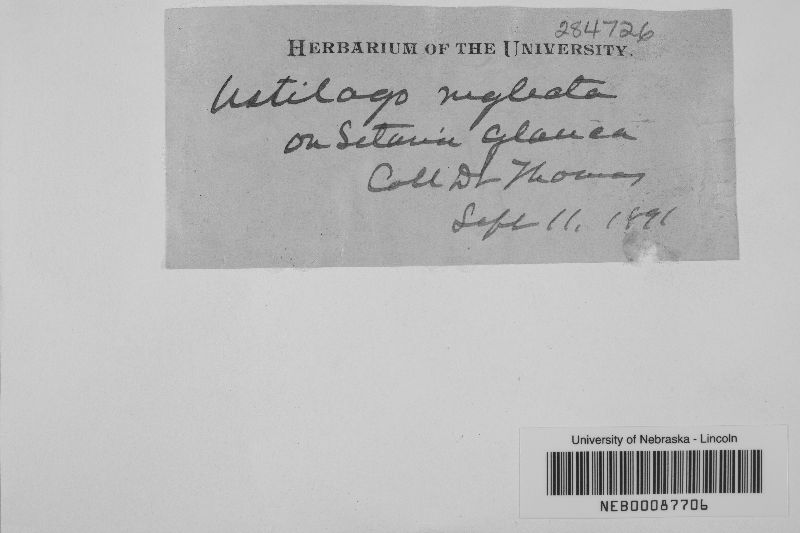 284726
HERBARIUM OF THE UNIVERSITY.
Ustilago neglecta
on Setaria glauca
Coll Dr Thomas
Sept 11, 1891
University of Nebraska - Lincoln
NEB00087706